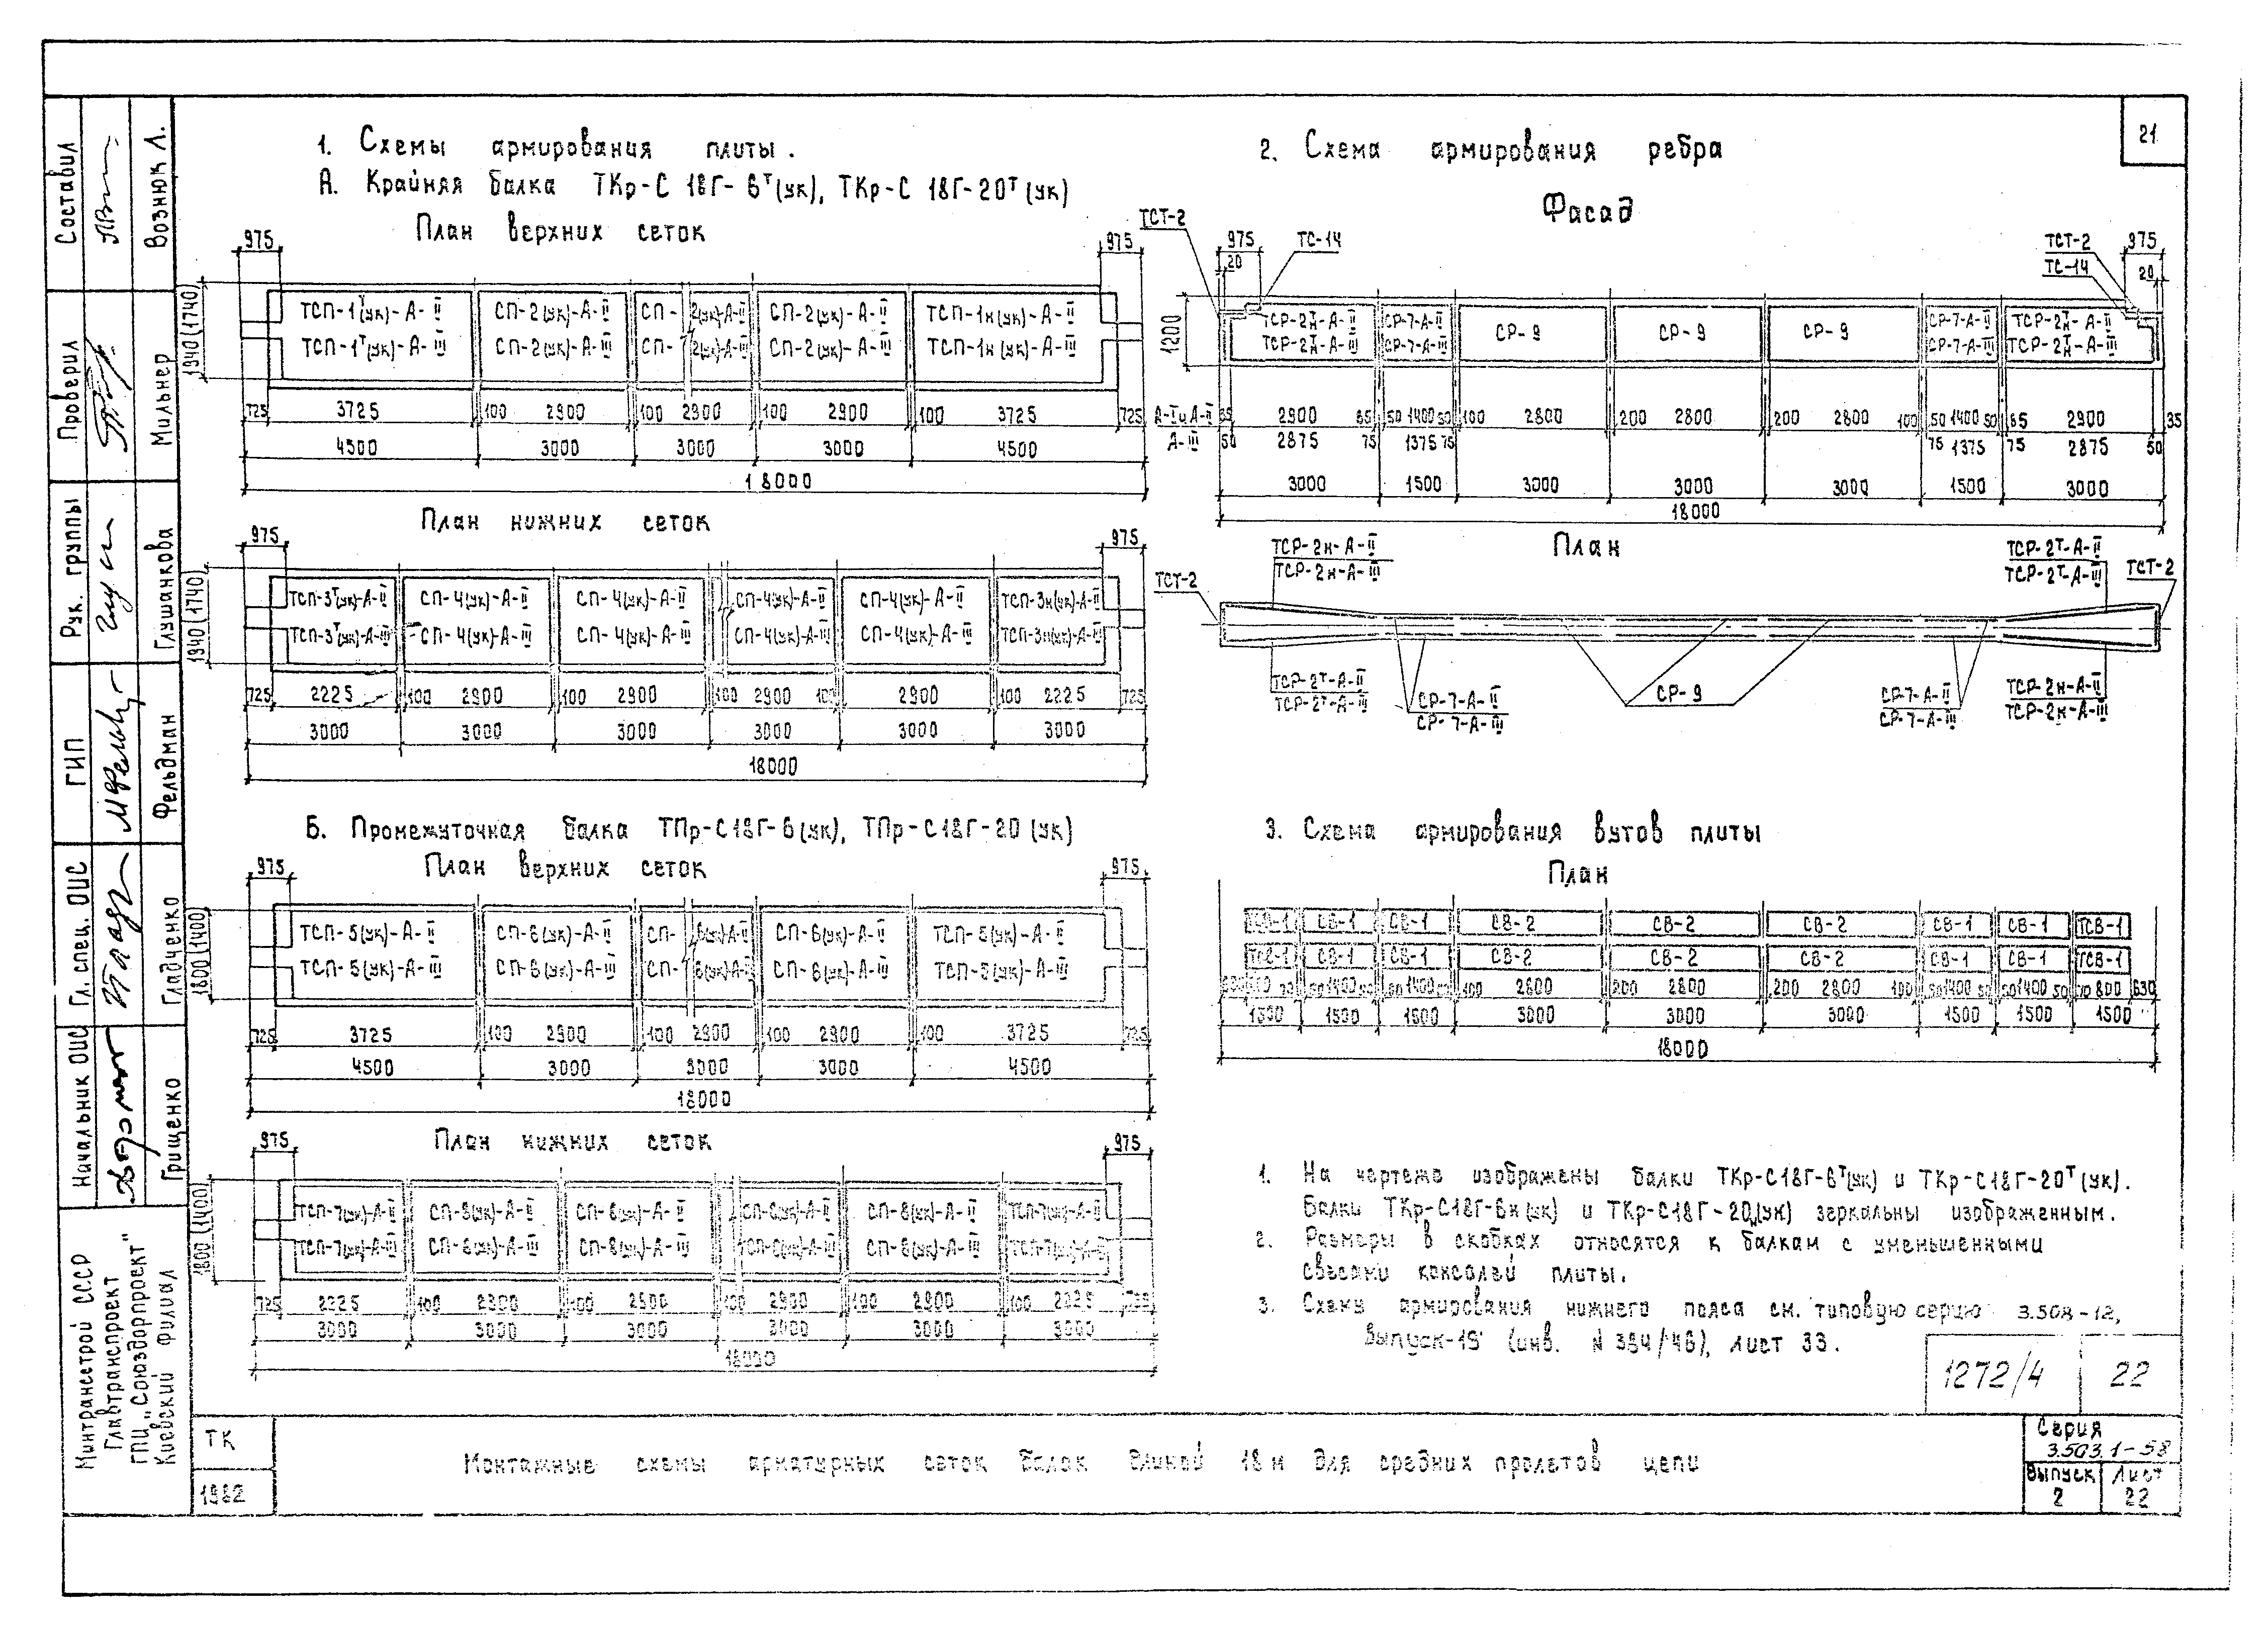 21
1. Схемы армирования плиты.
А. Крайняя балка ТКр-С 18Г-6ᵀ(ук), ТКр-С 18Г-20ᵀ(ук)
План верхних сеток
975 975
1940(1740)
ТСП-1ᵀ(ук)-А-II СП-2(ук)-А-II СП-2(ук)-А-II СП-2(ук)-А-II ТСП-1н(ук)-А-II
ТСП-1ᵀ(ук)-А-III СП-2(ук)-А-III СП-2(ук)-А-III СП-2(ук)-А-III ТСП-1н(ук)-А-III
725 3725 100 2900 100 2900 100 2900 100 3725 725
4500 3000 3000 3000 4500
18000
План нижних сеток
975 975
1940(1740)
ТСП-3ᵀ(ук)-А-II СП-4(ук)-А-II СП-4(ук)-А-II СП-4(ук)-А-II СП-4(ук)-А-II ТСП-3н(ук)-А-II
ТСП-3ᵀ(ук)-А-III СП-4(ук)-А-III СП-4(ук)-А-III СП-4(ук)-А-III СП-4(ук)-А-III ТСП-3н(ук)-А-III
725 2225 100 2900 100 2900 100 2900 100 2900 100 2225 725
3000 3000 3000 3000 3000 3000
18000
Б. Промежуточная балка ТПр-С18Г-6(ук), ТПр-С18Г-20(ук)
План верхних сеток
975 975
1800(1400)
ТСП-5(ук)-А-II СП-6(ук)-А-II СП-6(ук)-А-II СП-6(ук)-А-II ТСП-5(ук)-А-II
ТСП-5(ук)-А-III СП-6(ук)-А-III СП-6(ук)-А-III СП-6(ук)-А-III ТСП-5(ук)-А-III
725 3725 100 2900 100 2900 100 2900 100 3725 725
4500 3000 3000 3000 4500
18000
План нижних сеток
975 975
1800(1400)
ТСП-7(ук)-А-II СП-8(ук)-А-II СП-8(ук)-А-II СП-8(ук)-А-II СП-8(ук)-А-II ТСП-7(ук)-А-II
ТСП-7(ук)-А-III СП-8(ук)-А-III СП-8(ук)-А-III СП-8(ук)-А-III ТСП-7(ук)-А-III
725 2225 100 2900 100 2900 100 2900 100 2900 100 2225 725
3000 3000 3000 3000 3000 3000
18000
2. Схема армирования ребра
Фасад
ТСТ-2 975 20 ТС-14 ТСТ-2 975
ТС-14 20
1200
ТСР-2н-А-II СР-7-А-II СР-9 СР-9 СР-9 СР-7-А-II ТСР-2н-А-II
ТСР-2н-А-III СР-7-А-III СР-7-А-III ТСР-2н-А-III
А-I и А-II 35 2900 65 50 1400 50 100 2800 200 2800 200 2800 100 50 1400 50 65 2900 35
А-III 50 2875 75 1375 75 75 1375 75 2875 50
3000 1500 3000 3000 3000 1500 3000
18000
План
ТСР-2н-А-II ТСР-2ᵀ-А-II
ТСР-2н-А-III ТСР-2ᵀ-А-III
ТСТ-2 ТСТ-2
ТСР-2ᵀ-А-II СР-7-А-II СР-9 СР-7-А-II ТСР-2н-А-II
ТСР-2ᵀ-А-III СР-7-А-III СР-7-А-III ТСР-2н-А-III
3. Схема армирования вутов плиты
План
ТСВ-1 СВ-1 СВ-1 СВ-2 СВ-2 СВ-2 СВ-1 СВ-1 ТСВ-1
ТСВ-1 СВ-1 СВ-1 СВ-2 СВ-2 СВ-2 СВ-1 СВ-1 ТСВ-1
50 1400 50 50 1400 50 100 2800 200 2800 200 2800 100 50 1400 50 50 1400 50 70 800 630
1500 1500 1500 3000 3000 3000 1500 1500 1500
18000
1. На чертеже изображены балки ТКр-С18Г-6ᵀ(ук) и ТКр-С18Г-20ᵀ(ук).
Балки ТКр-С18Г-6н(ук) и ТКр-С18Г-20н(ук) зеркальны изображенным.
2. Размеры в скобках относятся к балкам с уменьшенными
свесами консолей плиты.
3. Схему армирования нижнего пояса см. типовую серию 3.503-12,
Выпуск-19 (инв. N 384/46), лист 33.
1272/4 22
ТК
1982
Монтажные схемы арматурных сеток балок длиной 18 м для средних пролетов цепи
Серия
3.503.1-58
Выпуск
2
Лист
22
Составил Вознюк Л.
Проверил Мильнер
Рук. группы Глушанкова
ГИП Фельдман
Гл. спец. ОИС Гладченко
Начальник ОИС Грищенко
Минтрансстрой СССР
Главтранспроект
ГПИ „Союздорпроект"
Киевский филиал